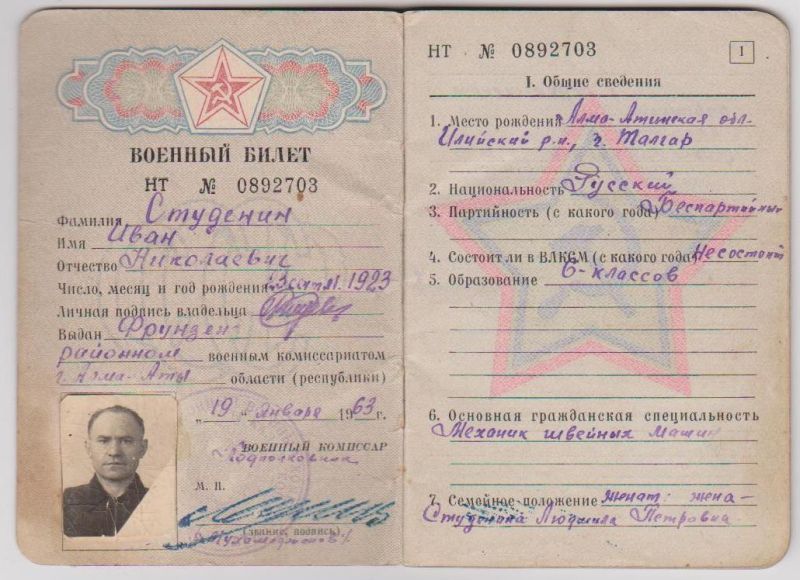 ВОЕННЫЙ БИЛЕТ
НТ № 0892703
Фамилия Студенин
Имя Иван
Отчество Николаевич
Число, месяц и год рождения 1923
Личная подпись владельца
Выдан Фрунзен
районном военным комиссариатом
г. Алма-Аты области (республики)
„19" января 1963 г.
ВОЕННЫЙ КОМИССАР
Подполковник
М. П.
(звание, подпись)
НТ № 0892703
1
I. Общие сведения
1. Место рождения Алма-Атинская обл.
Илийский р-н, г. Талгар
2. Национальность Русский
3. Партийность (с какого года) Беспартийный
4. Состоит ли в ВЛКСМ (с какого года) Не состоит
5. Образование 6-классов
6. Основная гражданская специальность
Механик швейных машин
7. Семейное положение женат: жена-
Студенина Людмила Петровна.